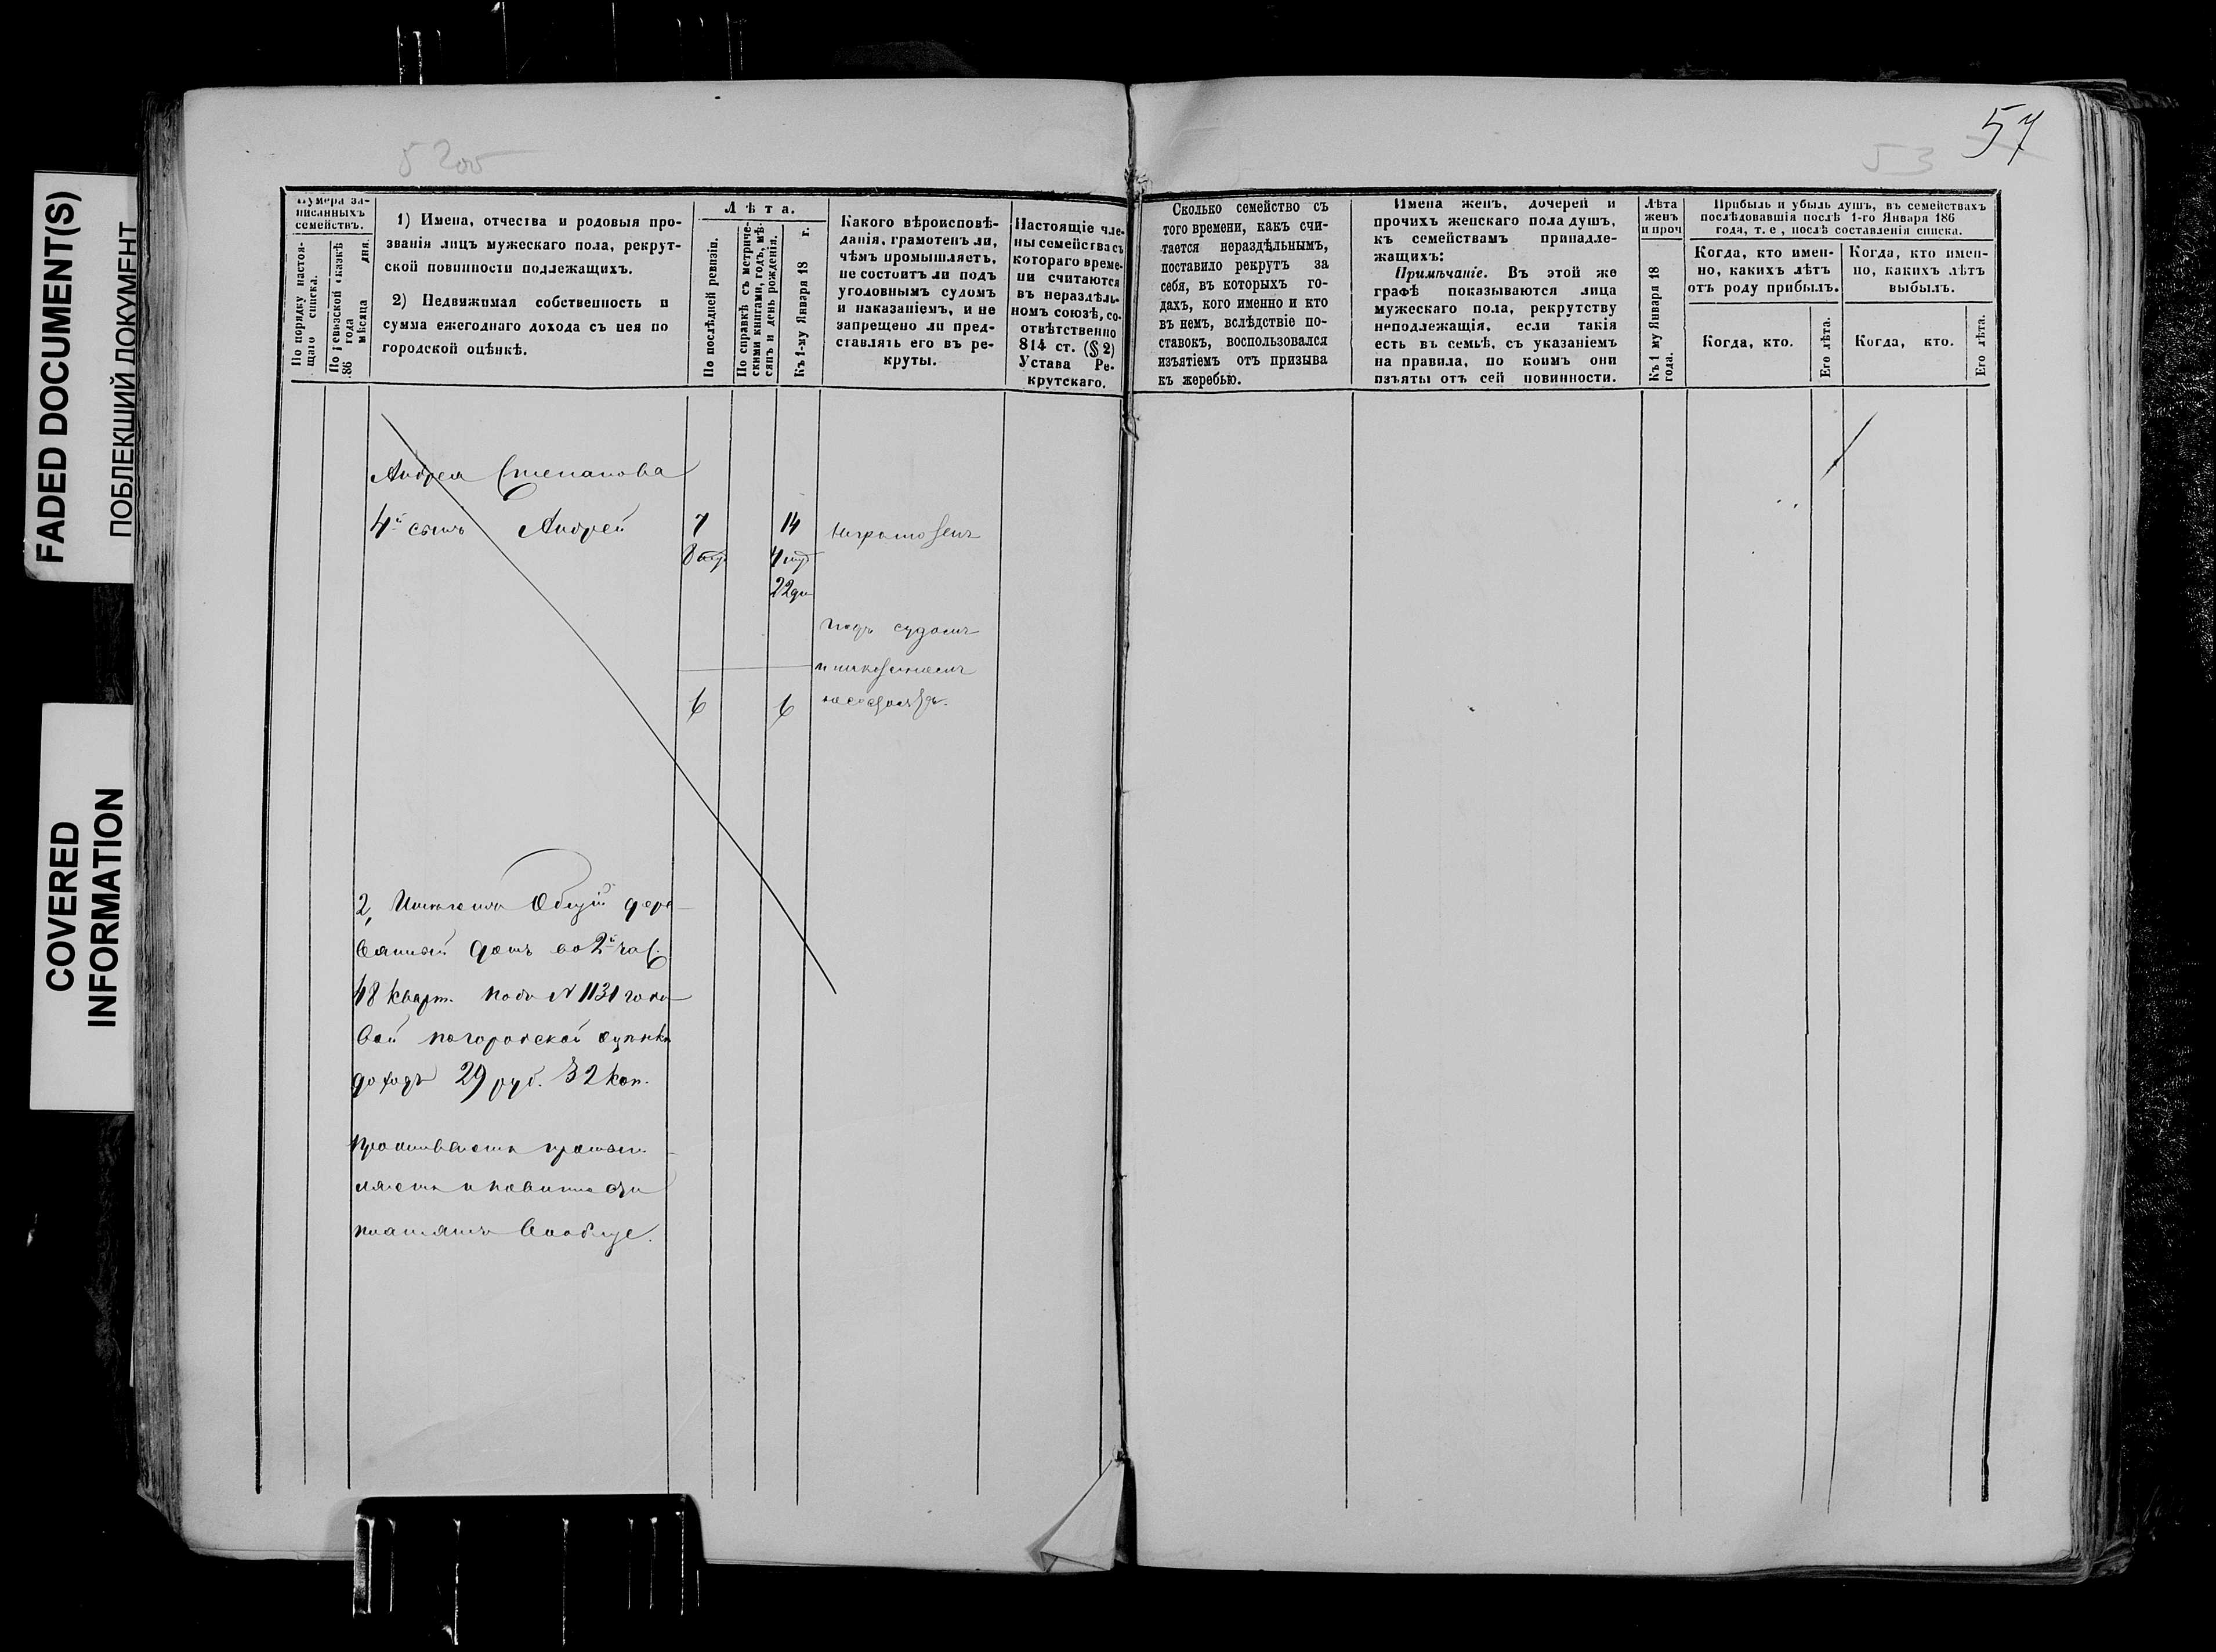 FADED DOCUMENT(S)
ПОБЛЕКШИЙ ДОКУМЕНТ
COVERED
INFORMATION
57
53
Нумера за-
писанныхъ
семействъ.
По порядку настоя-
щаго списка.
По ревизской сказкѣ
186 года
мѣсяца дня.
1) Имена, отчества и родовыя про-
званія лицъ мужескаго пола, рекрут-
ской повинности подлежащихъ.
2) Недвижимая собственность и
сумма ежегоднаго дохода съ нея по
городской оцѣнкѣ.
Лѣта.
По послѣдней ревизіи.
По справкѣ съ метриче-
скими книгами, годъ, мѣ-
сяцъ и день рожденія.
Къ 1-му Января 18 г.
Какого вѣроисповѣ-
данія, грамотенъ ли,
чѣмъ промышляетъ,
не состоитъ ли подъ
уголовнымъ судомъ
и наказаніемъ, и не
запрещено ли пред-
ставлять его въ ре-
круты.
Настоящіе чле-
ны семейства съ
котораго време-
ни считаются
въ нераздѣль-
номъ союзѣ, со-
отвѣтственно
814 ст. (§ 2)
Устава Ре-
крутскаго.
Сколько семейство съ
того времени, какъ счи-
тается нераздѣльнымъ,
поставило рекрутъ за
себя, въ которыхъ го-
дахъ, кого именно и кто
въ немъ, вслѣдствіе по-
ставокъ, воспользовался
изъятіемъ отъ призыва
къ жеребью.
Имена женъ, дочерей и
прочихъ женскаго пола душъ,
къ семействамъ принадле-
жащихъ:
Примѣчаніе. Въ этой же
графѣ показываются лица
мужескаго пола, рекрутству
неподлежащія, если такія
есть въ семьѣ, съ указаніемъ
на правила, по коимъ они
изъяты отъ сей повинности.
Лѣта
женъ
и проч
Къ 1 му Января 18
года.
Прибыль и убыль душъ, въ семействахъ
послѣдовавшія послѣ 1-го Января 186
года, т. е, послѣ составленія списка.
Когда, кто имен-
но, какихъ лѣтъ
отъ роду прибылъ.
Когда, кто имен-
но, какихъ лѣтъ
выбылъ.
Когда, кто.
Его лѣта.
Когда, кто.
Его лѣта.
Андрея Степанова
4й сынъ Андрей 7 14 Неграмотенъ
22 дн
подъ судомъ
и наказаніемъ
6 6 несостоятъ.
2, Имѣютъ Общій дере-
вянный домъ во 2й час.
48 кварт. подъ № 1131 годо-
вой погородской оцѣнкѣ
доходъ 29 руб. 32 коп.
Проживаютъ промыш-
ляютъ и повинности
платятъ Вообще.